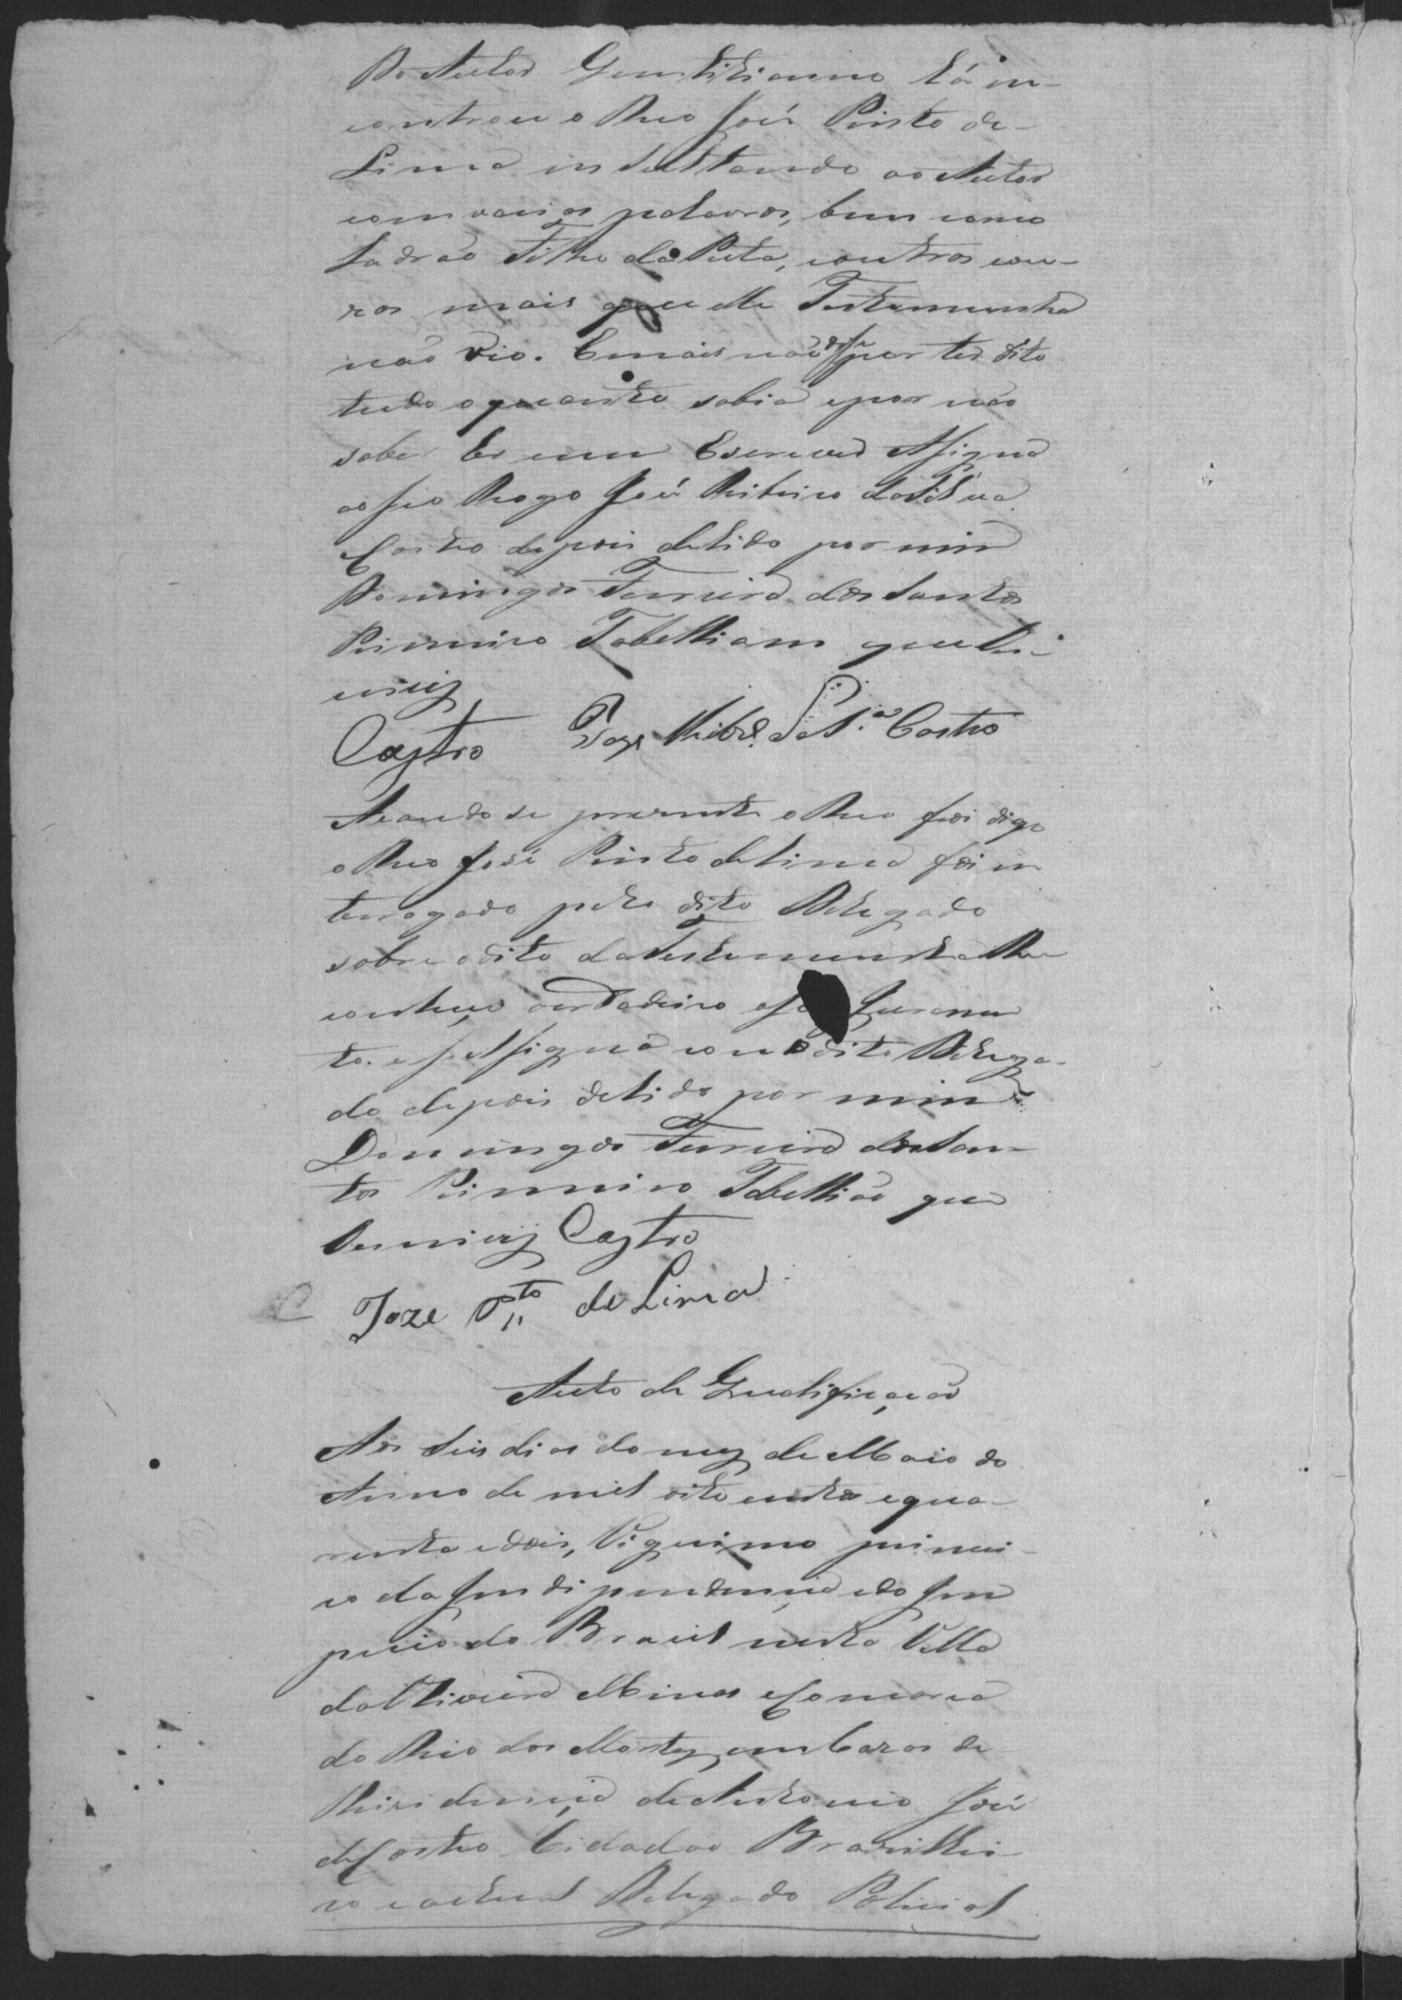 Do Autor Gentilianno lá in-
controu o Reo José Pinto de
Lima insultando ao Autor
com varias palavras, bem como
Ladrão Filho da Puta, e outras cou-
zas mais que elle Testemunha
não vio. E mais não disse por ter dito
tudo o quanto sabia e por não
saber ler nem Escrever Assigna
ao seo Rogo José Ribeiro da Silva
Castro depois de lido por mim
Domingos Ferreira dos Santos
Primeiro Tabelliam que Es-
crevy
Castro Joze Ribr.o da S.a Castro
Axando se prezente o Reo foi digo
o Reo José Pinto de Lima foi in
terrogado pelo dito Delegado
sobre o dito da Testemunha Re
conheceo verdadeiro Juramen
to. e se Assigna com o dito Delega-
do depois de lido por mim
Domingos Ferreira dos San-
tos Primeiro Tabellião que
Escrevy Castro
Joze P.to de Lima
Auto de Qualificação
Aos Seis dias do mez de Maio do
Anno de mil oito centos e qua-
renta e dois, Vigessimo primei-
ro da Independencia e do Im
perio do Brasil nesta Villa
da Oliveira Minas e Comarca
do Rio das Mortes, em Cazas de
Rezidencia de Antonio José
de Castro Cidadão Brazillei-
ro e actual Delegado Policial